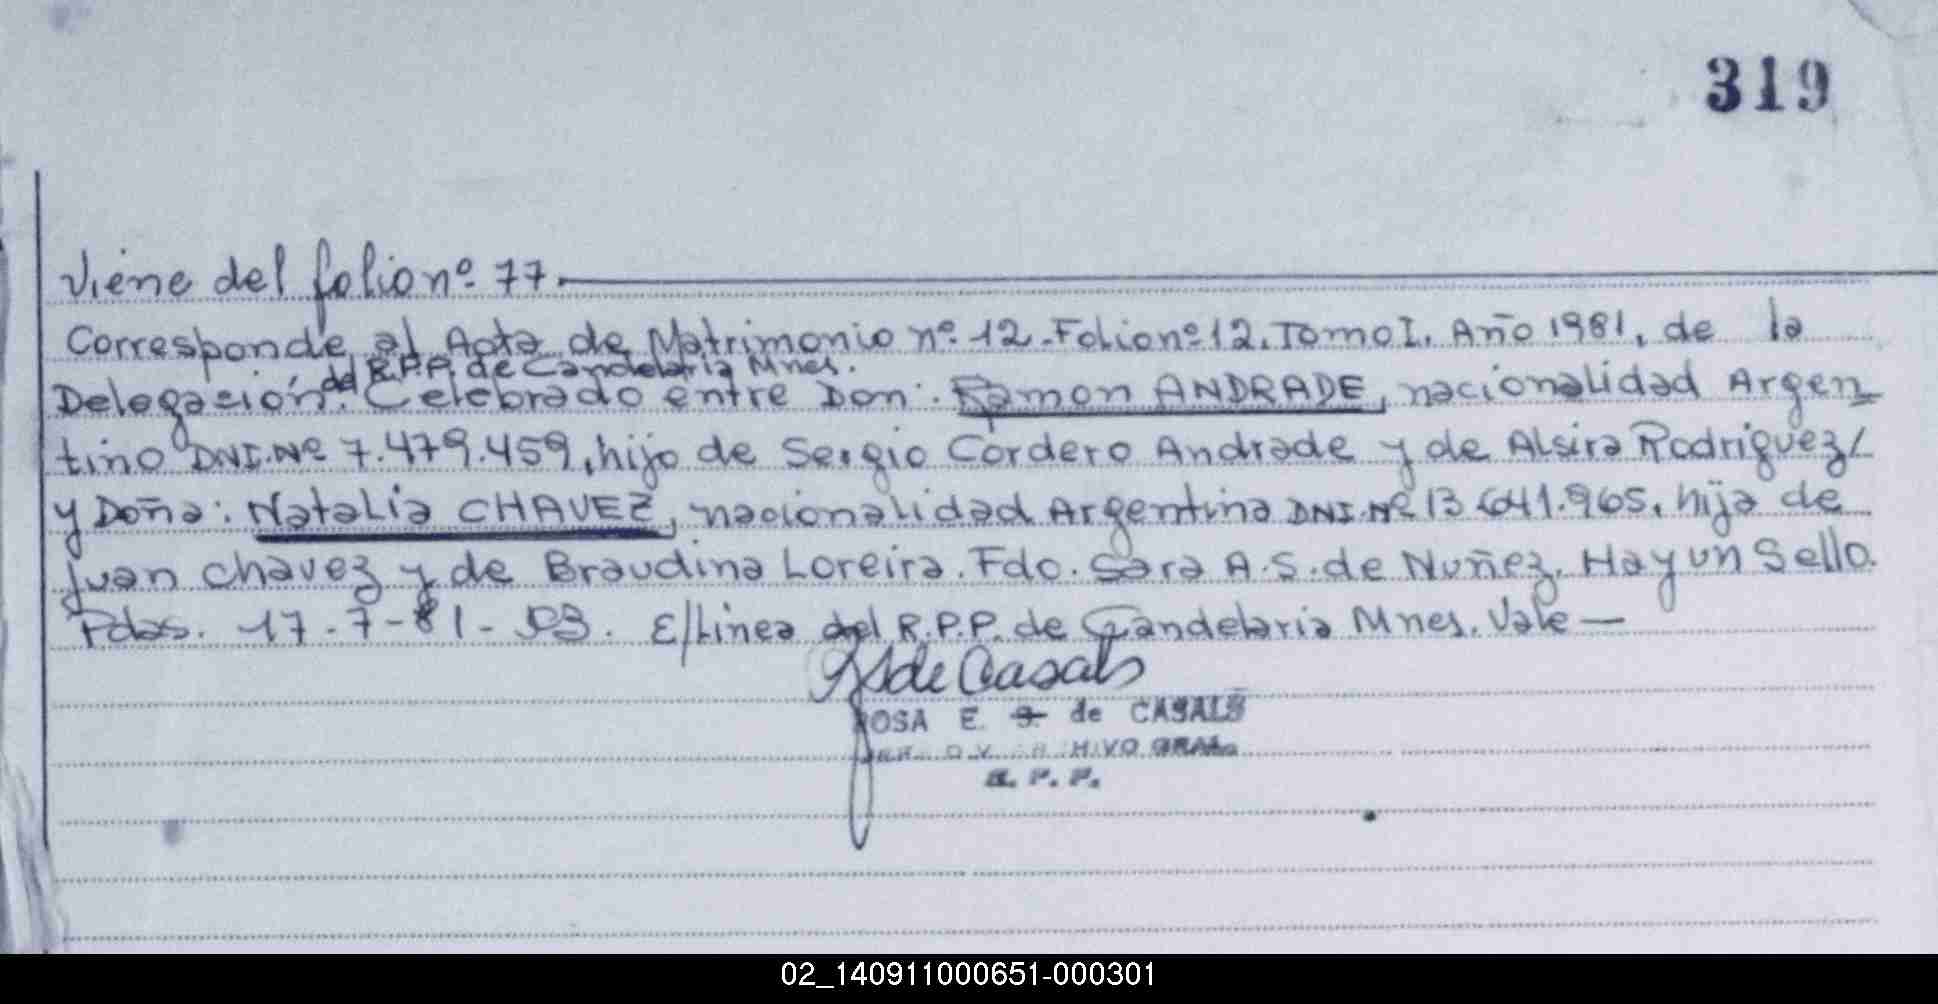 319
Viene del folio nº 77.
Corresponde al Acta de Matrimonio nº 12. Folio nº 12. Tomo I. Año 1981, de la
del R.P.P. de Candelaria Mnes.
Delegación. Celebrado entre Don: Ramon ANDRADE, nacionalidad Argen
tino DNI. Nº 7.479.459, hijo de Sergio Cordero Andrade y de Alsira Rodriguez/
y Doña: Natalia CHAVEZ, nacionalidad Argentina DNI. Nº 13.641.965, hija de
Juan Chavez y de Braudina Loreira. Fdo. Sara A.S. de Nuñez. Hay un Sello.
Pdas. 17-7-81- E/Linea del R.P.P. de Candelaria Mnes. Vale—
de Casals
ROSA E. S. de CASALS
GRAL.
R. P. P.
02_140911000651-000301